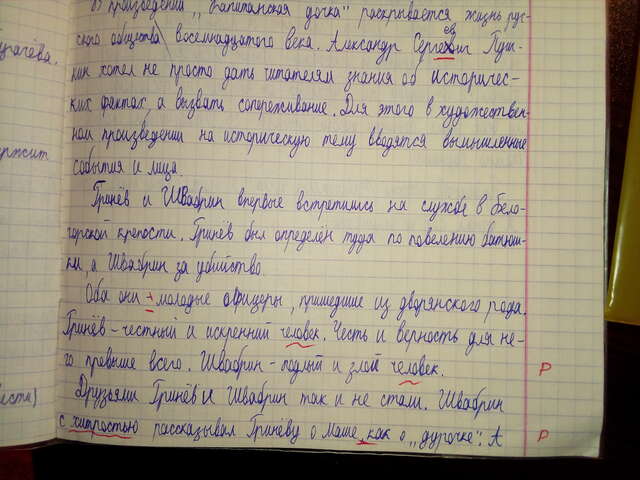 В произведении „Капитанская дочка" раскрывается жизнь рус-
ского общества восемнадцатого века. Александр Сергеевич Пуш-
кин хотел не просто дать читателям знания об историчес-
ких фактах а вызвать сопереживание. Для этого в художествен-
ном произведении на историческую тему вводятся вымышленные
события и лица.
Гринёв и Швабрин впервые встретились на службе в Бело-
горской крепости. Гринёв был определён туда по повелению батюш-
ки, а Швабрин за убийство.
Оба они - молодые офицеры, пришедшие из дворянского рода.
Гринёв - честный и искренний человек. Честь и верность для не-
го превыше всего. Швабрин - подлый и злой человек.
Р
Друзьями Гринёв и Швабрин так и не стали. Швабрин
с хитростью рассказывал Гринёву о Маше, как о „дурочке". А
Р
гачёва.
ержит
еста)